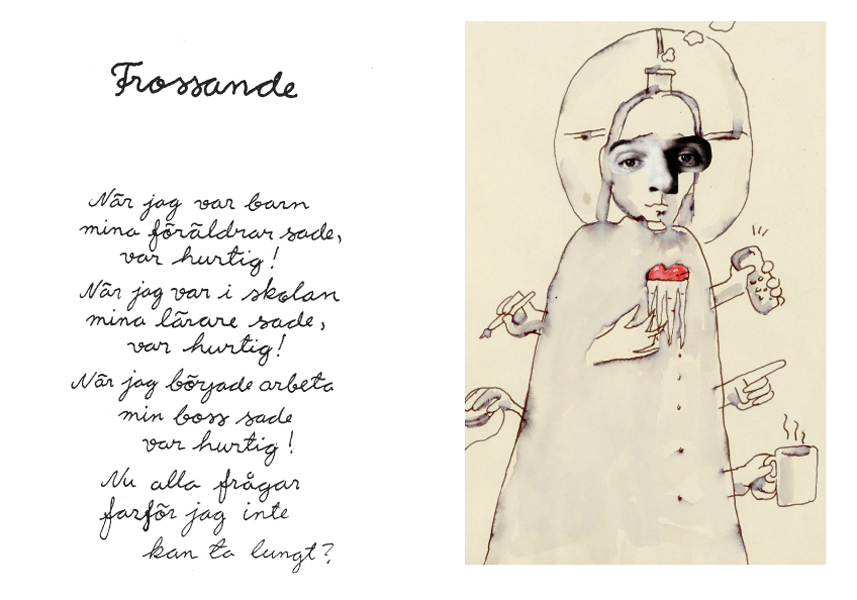 Frossande
När jag var barn
mina föräldrar sade,
var hurtig!
När jag var i skolan
mina lärare sade,
var hurtig!
När jag började arbeta
min boss sade
var hurtig!
Nu alla frågar
farför jag inte
kan ta lungt?